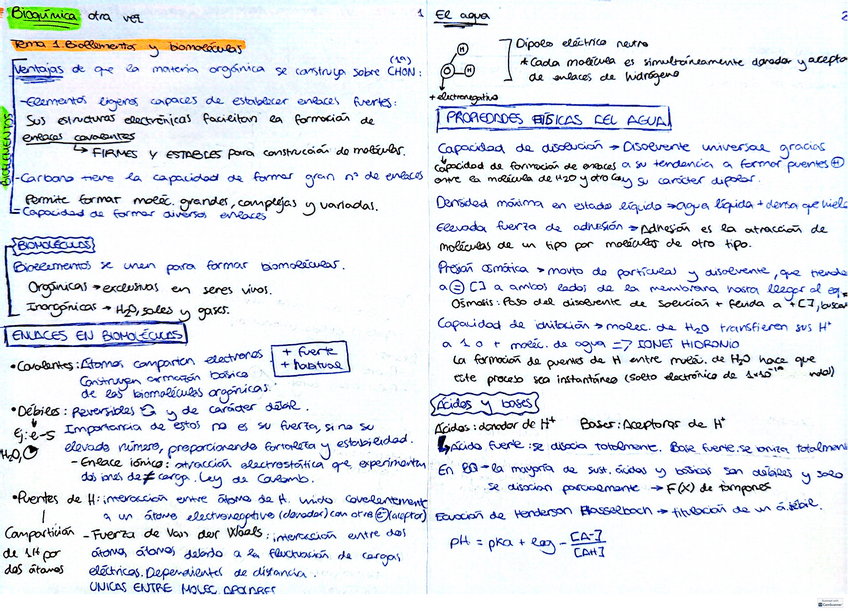 Bioquímica otra vez
1
Tema 1. Bioelementos y biomoléculas
BIOELEMENTOS
Ventajas de que la materia orgánica se construya sobre CHON:
(1º)
-Elementos ligeros capaces de establecer enlaces fuertes:
Sus estructuras electrónicas facilitan la formación de
enlaces covalentes
↳ FIRMES Y ESTABLES para construcción de molículas.
-Carbono tiene la capacidad de formar gran nº de enlaces
Permite formar moléc. grandes, complejas y variadas.
Capacidad de formar diversos enlaces
BIOMOLÉCULAS
Bioelementos se unen para formar biomoléculas.
Orgánicas → exclusivas en seres vivos.
Inorgánicas → H2O, sales y gases.
ENLACES EN BIOMOLÉCULAS
•Covalentes: Átomos comparten electrones
Construyen armazón básico
de las biomoléculas orgánicas.
+ fuerte
+ habitual
•Débiles: Reversibles y de carácter débil.
Importancia de estos no es su fuerza, si no su
elevado número, proporcionando fortaleza y estabilidad.
Ej: e-s
H2O,
- Enlace iónico: atracción electrostática que experimentan
dos iones de ≠ carga. Ley de Coulomb.
•Puentes de H: interacción entre átomo de H unido covalentemente
a un átomo electronegativo (donador) con otro (aceptor)
Compartición
de 1H por
dos átomos
- Fuerza de Van der Waals: interacción entre dos
átomos átomos debido a la fluctuación de cargas
eléctricas. Dependientes de distancia.
UNICAS ENTRE MOLEC. APOLARES
El agua
2
H
O
H
+ electronegativo
Dipolo eléctrico neutro
* Cada molécula es simultáneamente donador y acepto
de enlaces de hidrógeno
PROPIEDADES FÍSICAS DEL AGUA
Capacidad de disolución → Disolvente universal gracias
capacidad de formación de enlaces a su tendencia a formar puentes H
entre la molécula de H2O y otro y su carácter dipolar.
Densidad máxima en estado líquido → agua líquida + densa que hielo
Elevada fuerza de adhesión → Adhesión es la atracción de
moléculas de un tipo por moléculas de otro tipo.
Presión osmótica → movto de partículas y disolvente, que tiende
a = [ ] a ambos lados de la membrana hasta llegar al eq.
Osmosis: Paso del disolvente de solución + fluida a + [ ], buscan
Capacidad de ionización → molec. de H2O transfieren sus H+
a 1 o + moléc. de agua => IONES HIDRONIO
La formación de puentes de H entre moléc. de H2O hace que
este proceso sea instantáneo (Salto electrónico de
Ácidos y bases
Ácidos: donador de H+ Bases: Aceptoras de H+
Ácido fuerte: se disocia totalmente. Base fuerte: se ioniza totalmen
En la mayoría de sust. ácidas y básicas son débiles y solo
se disocian parcialmente → F(X) de tampones
Ecuación de Henderson Hasselbach → titulación de un á. débil.
pH = pKa + log - [A-]
[AH]
CamScanner